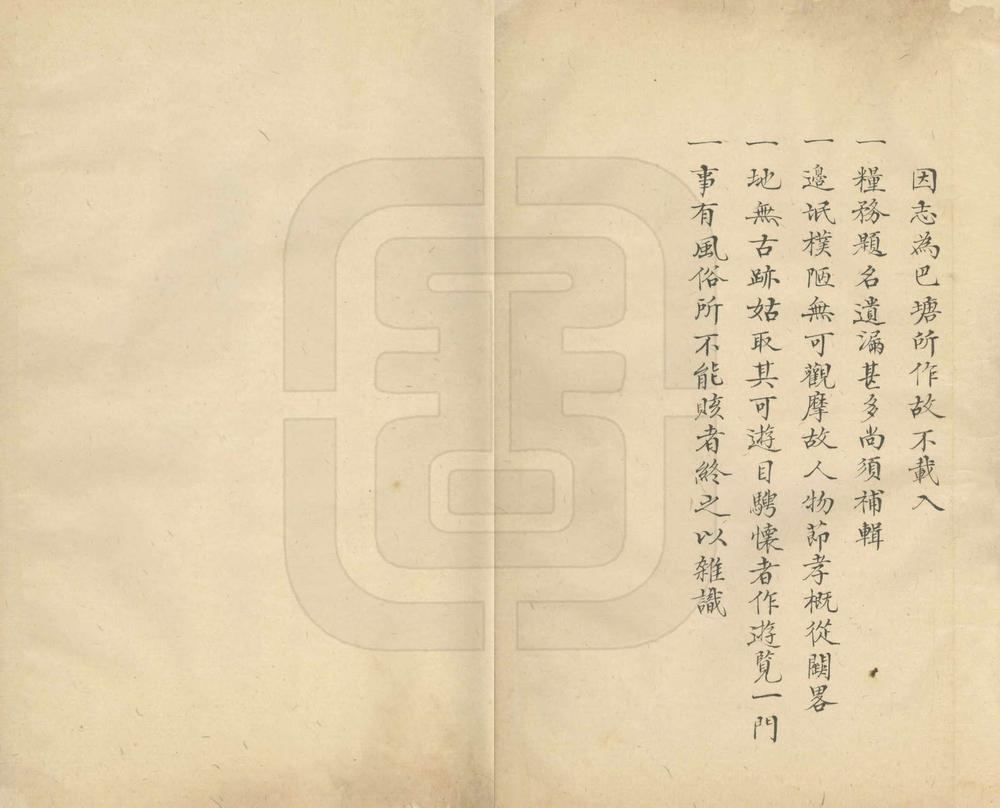 因志為巴塘所作故不載入
一糧務題名遺漏甚多尚須補輯
一邊氓樸陋無可觀摩故人物節孝概從闕畧
一地無古跡姑取其可遊目騁懷者作遊覧一門
一事有風俗所不能賅者終之以雜識